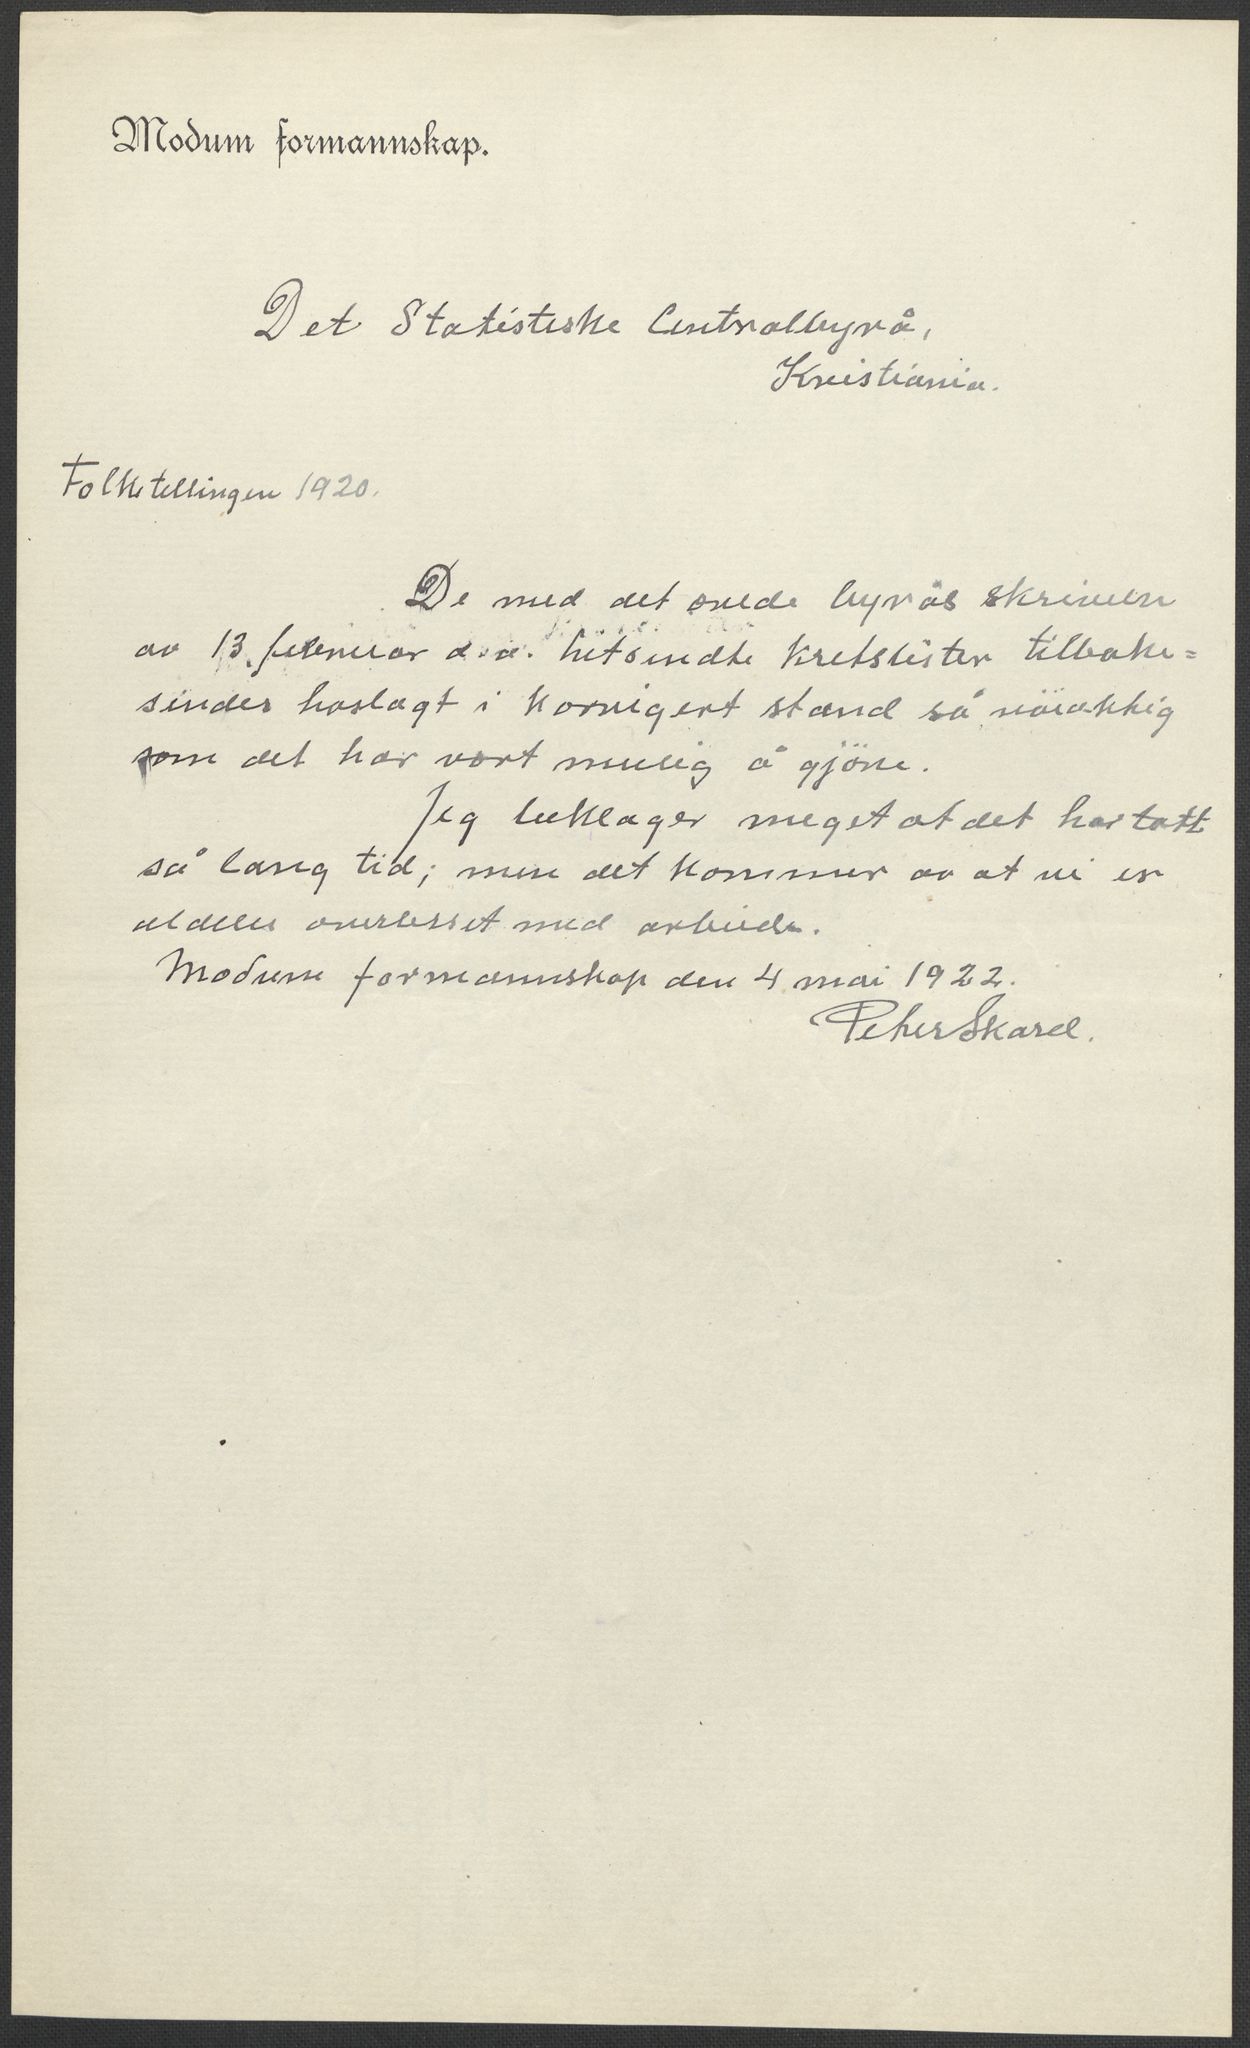 Modum formannskap.
Det Statistiske Centralbyrå,
Kristiania.
Folketellingen 1920.
De med det ærede byrås skrivelse
av 13. februar d.å. hitsendte kretslister tilbake=
sendes hoslagt i korrigert stand så nöiaktig
som det har vært mulig å gjöre.
Jeg beklager meget at det har tatt
så lang tid; men det kommer av at vi er
aldeles overlesset med arbeide.
Modum formannskap den 4 mai 1922.
Peter Skarel.